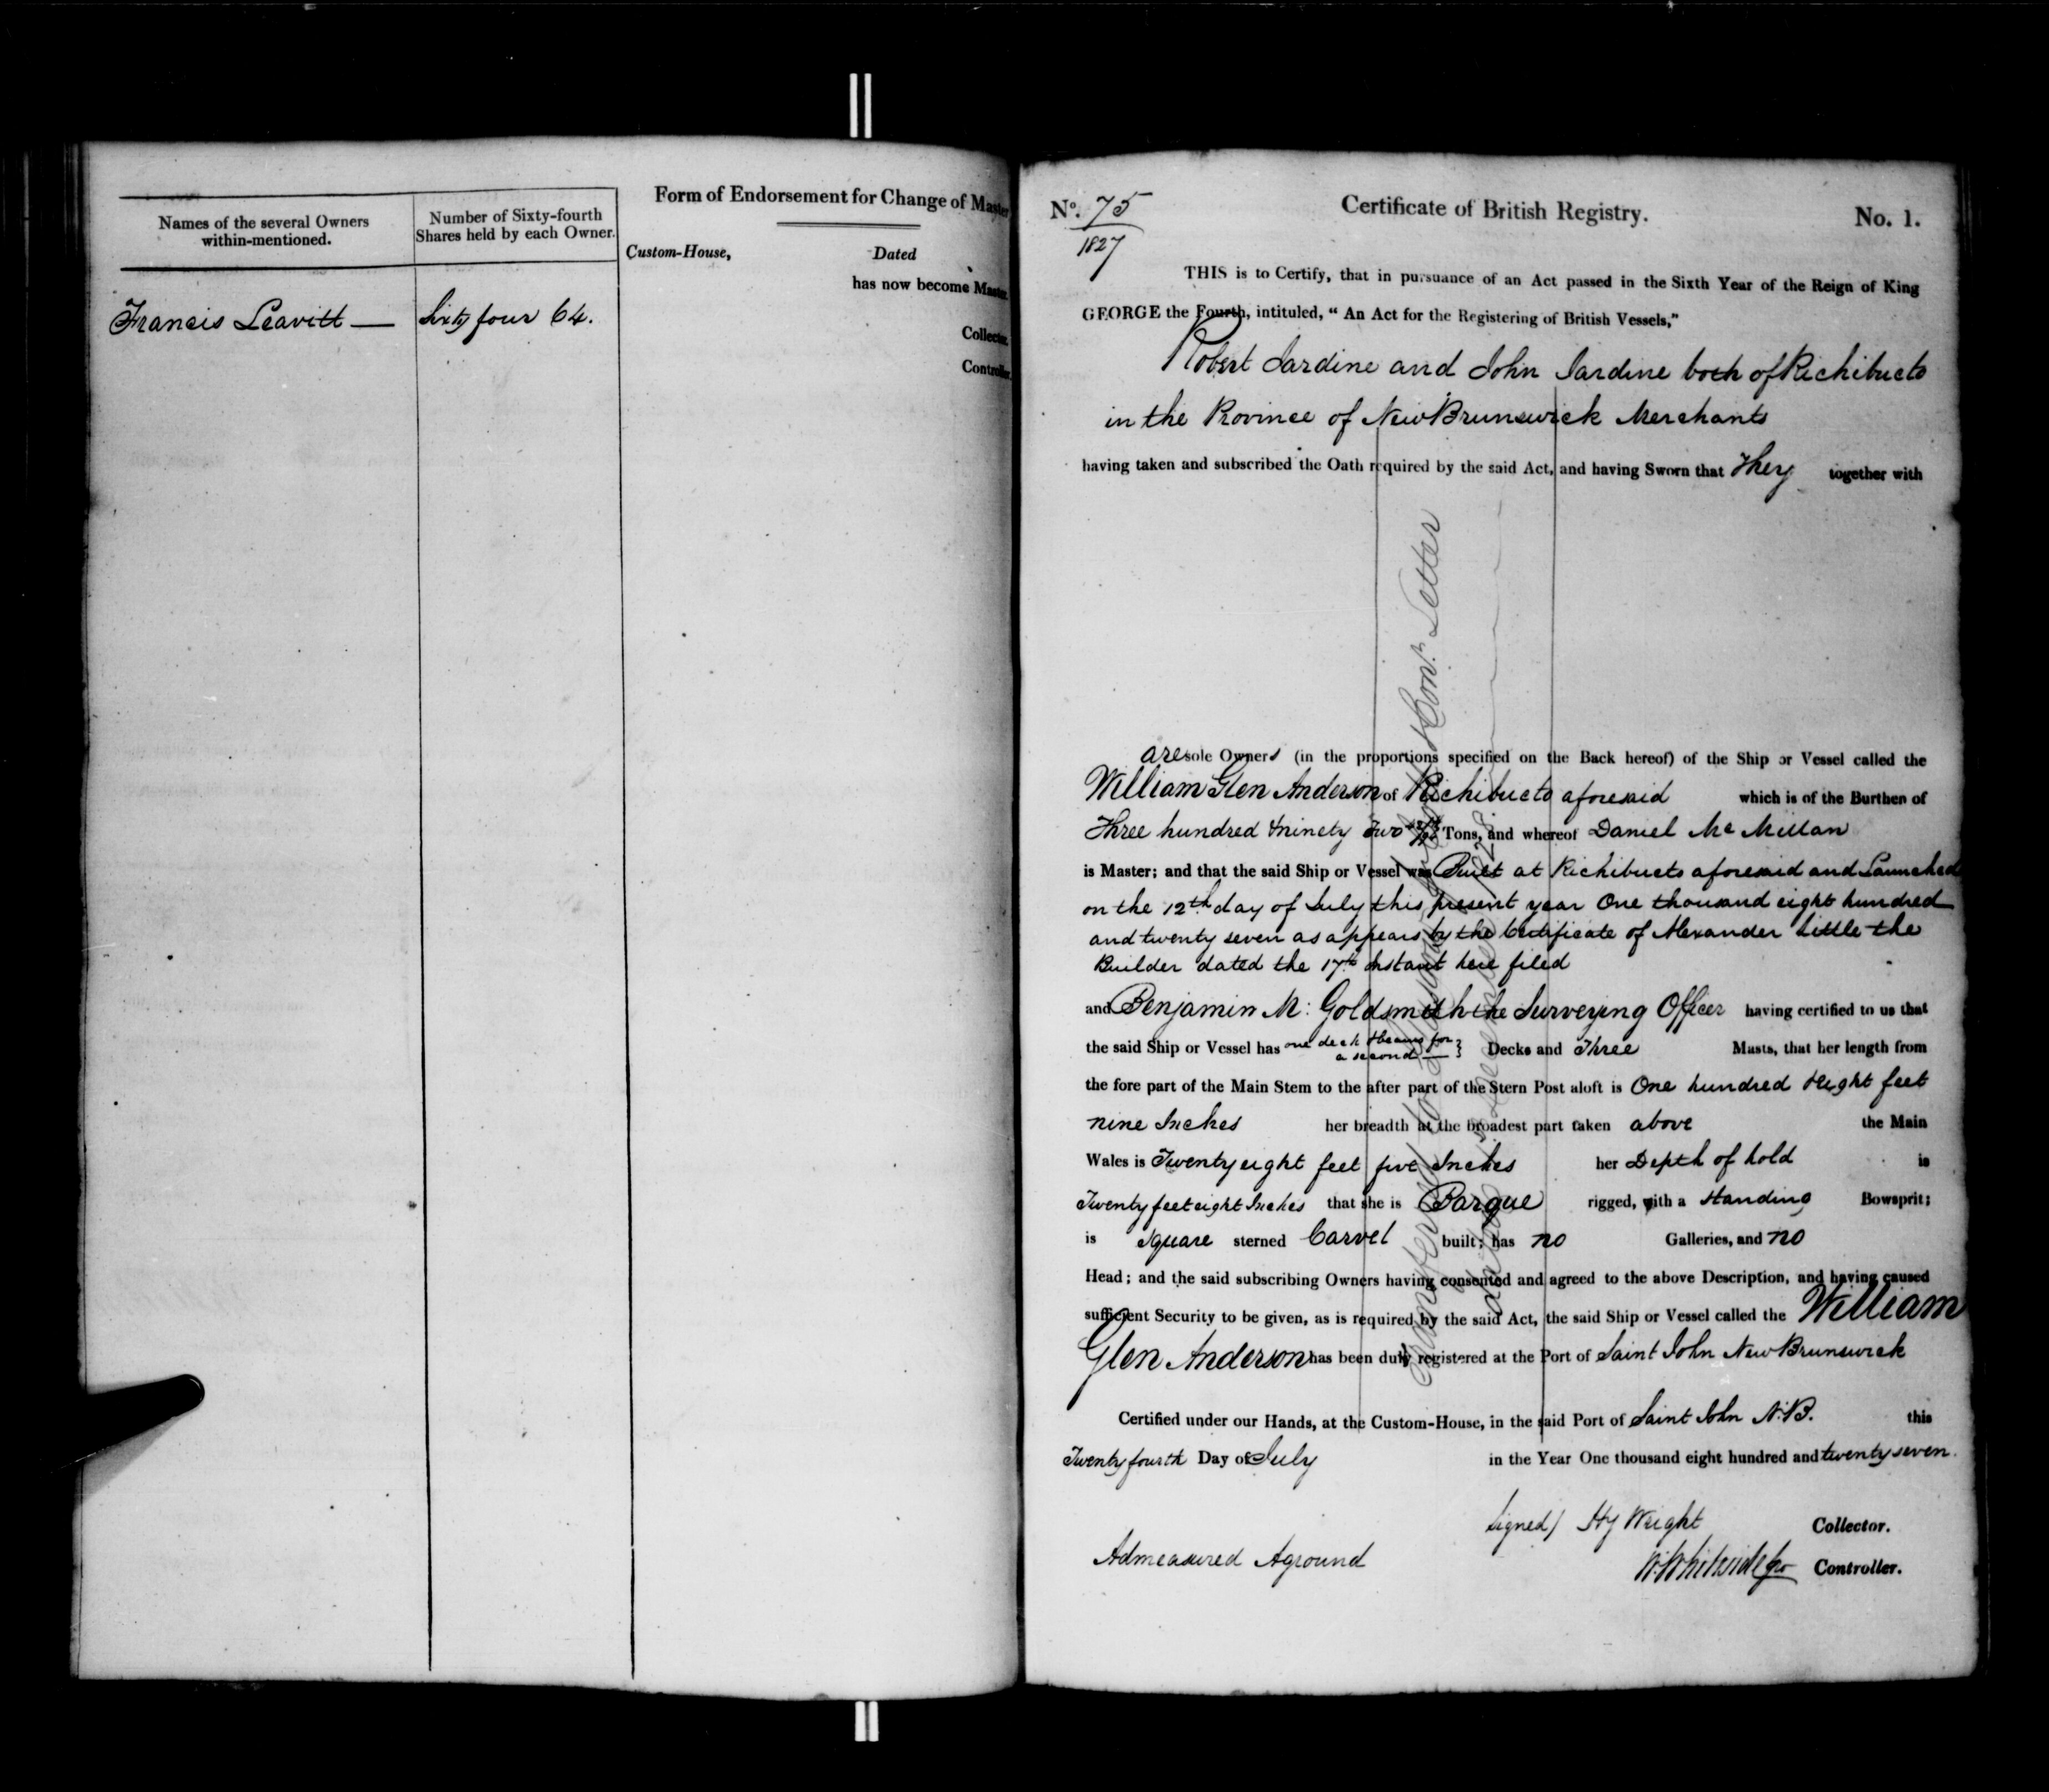 Names of the several Owners
within-mentioned.
Number of Sixty-fourth
Shares held by each Owner.
Francis Leavitt —
Sixty four 64.
Form of Endorsement for Change of Master
Custom-House,
Dated
has now become Master.
Collector.
Controller.
No. 75
1827
Certificate of British Registry.
No. 1.
THIS is to Certify, that in pursuance of an Act passed in the Sixth Year of the Reign of King
GEORGE the Fourth, intituled, “ An Act for the Registering of British Vessels,”
Robert Jardine and John Jardine both of Richibucto
in the Province of New Brunswick Merchants
having taken and subscribed the Oath required by the said Act, and having Sworn that They together with
are sole Owners (in the proportions specified on the Back hereof) of the Ship or Vessel called the
William Glen Anderson of Richibucto aforesaid which is of the Burthen of
Three hundred & ninety Two Tons, and whereof Daniel Mc Millan
is Master; and that the said Ship or Vessel was Built at Richibucto aforesaid and Launched
on the 12th day of July this present year One thousand eight hundred
and twenty seven as appears by the Certificate of Alexander Little the
Builder dated the 17th Instant here filed
and Benjamin M: Goldsmith the Surveying Officer having certified to us that
the said Ship or Vessel has one deck & beams for
a second — } Decks and Three Masts, that her length from
the fore part of the Main Stem to the after part of the Stern Post aloft is One hundred & eight feet
nine Inches her breadth at the broadest part taken above the Main
Wales is Twenty eight feet five Inches her Depth of hold is
Twenty feet eight Inches that she is Barque rigged, with a Standing Bowsprit;
is Square sterned Carvel built; has no Galleries, and no
Head; and the said subscribing Owners having consented and agreed to the above Description, and having caused
sufficient Security to be given, as is required by the said Act, the said Ship or Vessel called the William
Glen Anderson has been duly registered at the Port of Saint John New Brunswick
Certified under our Hands, at the Custom-House, in the said Port of Saint John N.B. this
Twenty fourth Day of July in the Year One thousand eight hundred and twenty seven.
Signed) Hy Wright Collector.
Admeasured Aground
Controller.
Letter